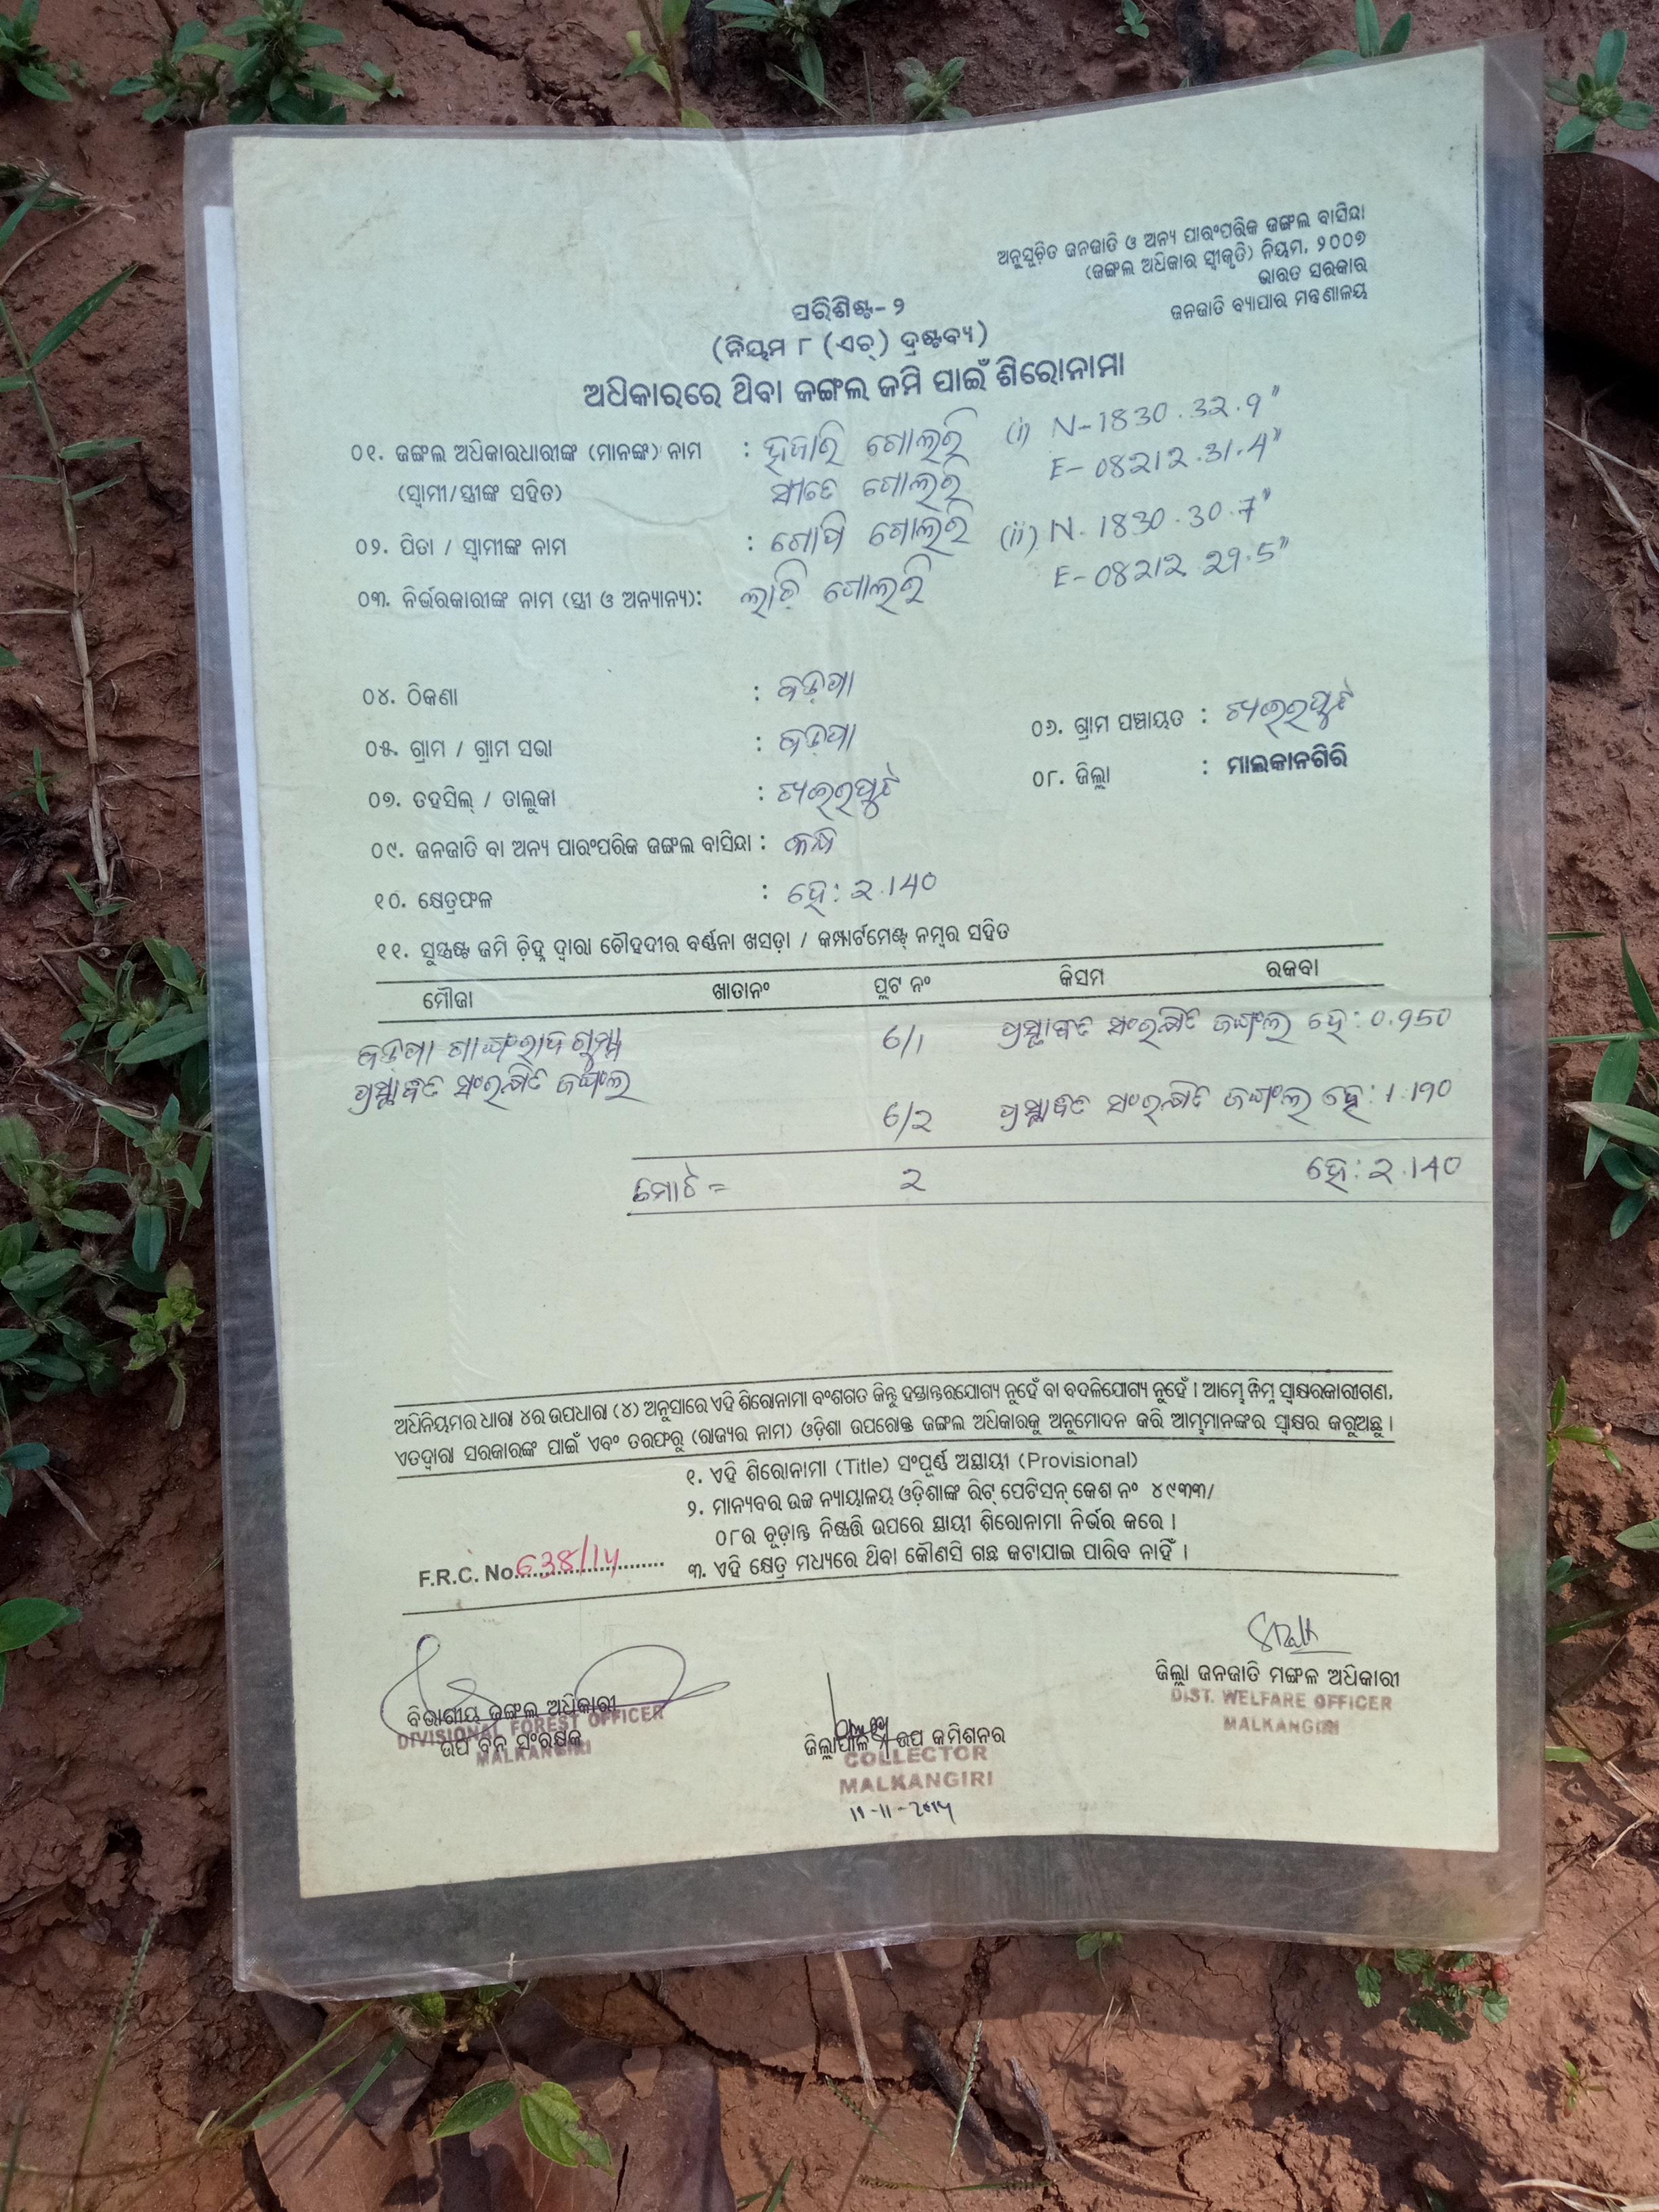 ଅନୁସୂଚିତ ଜନଜାତି ଓ ଅନ୍ୟ ପାରଂପରିକ ଜଙ୍ଗଲ ବାସିନ୍ଦା
(ଜଙ୍ଗଲ ଅଧିକାର ସ୍ୱୀକୃତି) ନିୟମ, ୨୦୦୭
ଭାରତ ସରକାର
ଜନଜାତି ବ୍ୟାପାର ମନ୍ତ୍ରଣାଳୟ
ପରିଶିଷ୍ଟ- ୨
(ନିୟମ ୮ (ଏଚ୍) ଦ୍ରଷ୍ଟବ୍ୟ)
ଅଧିକାରରେ ଥିବା ଜଙ୍ଗଲ ଜମି ପାଇଁ ଶିରୋନାମା
୦୧. ଜଙ୍ଗଲ ଅଧିକାରଧାରୀଙ୍କ (ମାନଙ୍କ) ନାମ : ହଜାରି ଗୋଲରି (i) N-1830.32.9"
(ସ୍ୱାମୀ/ସ୍ତ୍ରୀଙ୍କ ସହିତ) ଗୋଲରି E-08212.31.4"
୦୨. ପିତା / ସ୍ୱାମୀଙ୍କ ନାମ : ଗୋପି ଗୋଲରି (ii) N. 1830.30.7"
୦୩. ନିର୍ଭରକାରୀଙ୍କ ନାମ (ସ୍ତ୍ରୀ ଓ ଅନ୍ୟାନ୍ୟ): ଗୋଲରି E-08212.29.5"
୦୪. ଠିକଣା : ବଡ଼ପା
୦୫. ଗ୍ରାମ / ଗ୍ରାମ ସଭା : ବଡ଼ପା ୦୬. ଗ୍ରାମ ପଞ୍ଚାୟତ : ଖଇରପୁଟ
୦୭. ତହସିଲ୍ / ତାଲୁକା : ଖଇରପୁଟ ୦୮. ଜିଲ୍ଲା : ମାଲକାନଗିରି
୦୯. ଜନଜାତି ବା ଅନ୍ୟ ପାରଂପରିକ ଜଙ୍ଗଲ ବାସିନ୍ଦା :
୧୦. କ୍ଷେତ୍ରଫଳ : ହେ: ୨.140
୧୧. ସୁସ୍ପଷ୍ଟ ଜମି ଚିହ୍ନ ଦ୍ୱାରା ଚୌହଦୀର ବର୍ଣ୍ଣନା ଖସଡ଼ା / କମ୍ପାର୍ଟମେଣ୍ଟ୍ ନମ୍ବର ସହିତ
ମୌଜା ଖାତାନଂ ପ୍ଲଟ ନଂ କିସମ ରକବା
ବଡ଼ପା 6/1 ପ୍ରସ୍ତାବିତ ସଂରକ୍ଷିତ ଜଙ୍ଗଲ ହେ: 0.950
ପ୍ରସ୍ତାବିତ ସଂରକ୍ଷିତ ଜଙ୍ଗଲ
6/2 ପ୍ରସ୍ତାବିତ ସଂରକ୍ଷିତ ଜଙ୍ଗଲ ହେ: 1.190
ମୋଟ = ୨ ହେ: ୨.140
ଅଧିନିୟମର ଧାରା ୪ର ଉପଧାରା (୪) ଅନୁସାରେ ଏହି ଶିରୋନାମା ବଂଶଗତ କିନ୍ତୁ ହସ୍ତାନ୍ତରଯୋଗ୍ୟ ନୁହେଁ ବା ବଦଳିଯୋଗ୍ୟ ନୁହେଁ । ଆମ୍ଭେ ନିମ୍ନ ସ୍ୱାକ୍ଷରକାରୀଗଣ,
ଏତଦ୍ୱାରା ସରକାରଙ୍କ ପାଇଁ ଏବଂ ତରଫରୁ (ରାଜ୍ୟର ନାମ) ଓଡ଼ିଶା ଉପରୋକ୍ତ ଜଙ୍ଗଲ ଅଧିକାରକୁ ଅନୁମୋଦନ କରି ଆମ୍ଭମାନଙ୍କର ସ୍ୱାକ୍ଷର କରୁଅଛୁ ।
୧. ଏହି ଶିରୋନାମା (Title) ସଂପୂର୍ଣ୍ଣ ଅସ୍ଥାୟୀ (Provisional)
୨. ମାନ୍ୟବର ଉଚ୍ଚ ନ୍ୟାୟାଳୟ ଓଡ଼ିଶାଙ୍କ ରିଟ୍ ପେଟିସନ୍ କେଶ ନଂ ୪୯୩୩/
୦୮ର ଚୂଡ଼ାନ୍ତ ନିଷ୍ପତ୍ତି ଉପରେ ସ୍ଥାୟୀ ଶିରୋନାମା ନିର୍ଭର କରେ ।
୩. ଏହି କ୍ଷେତ୍ର ମଧ୍ୟରେ ଥିବା କୌଣସି ଗଛ କଟାଯାଇ ପାରିବ ନାହିଁ ।
F.R.C. No. 638/14
ଜିଲ୍ଲା ଜନଜାତି ମଙ୍ଗଳ ଅଧିକାରୀ
DIST. WELFARE OFFICER
MALKANGIRI
ବିଭାଗୀୟ ଜଙ୍ଗଲ ଅଧିକାରୀ
DIVISIONAL FOREST OFFICER
ଉପ ବନ ସଂରକ୍ଷକ
MALKANGIRI
ଜିଲ୍ଲାପାଳ / ଉପ କମିଶନର
COLLECTOR
MALKANGIRI